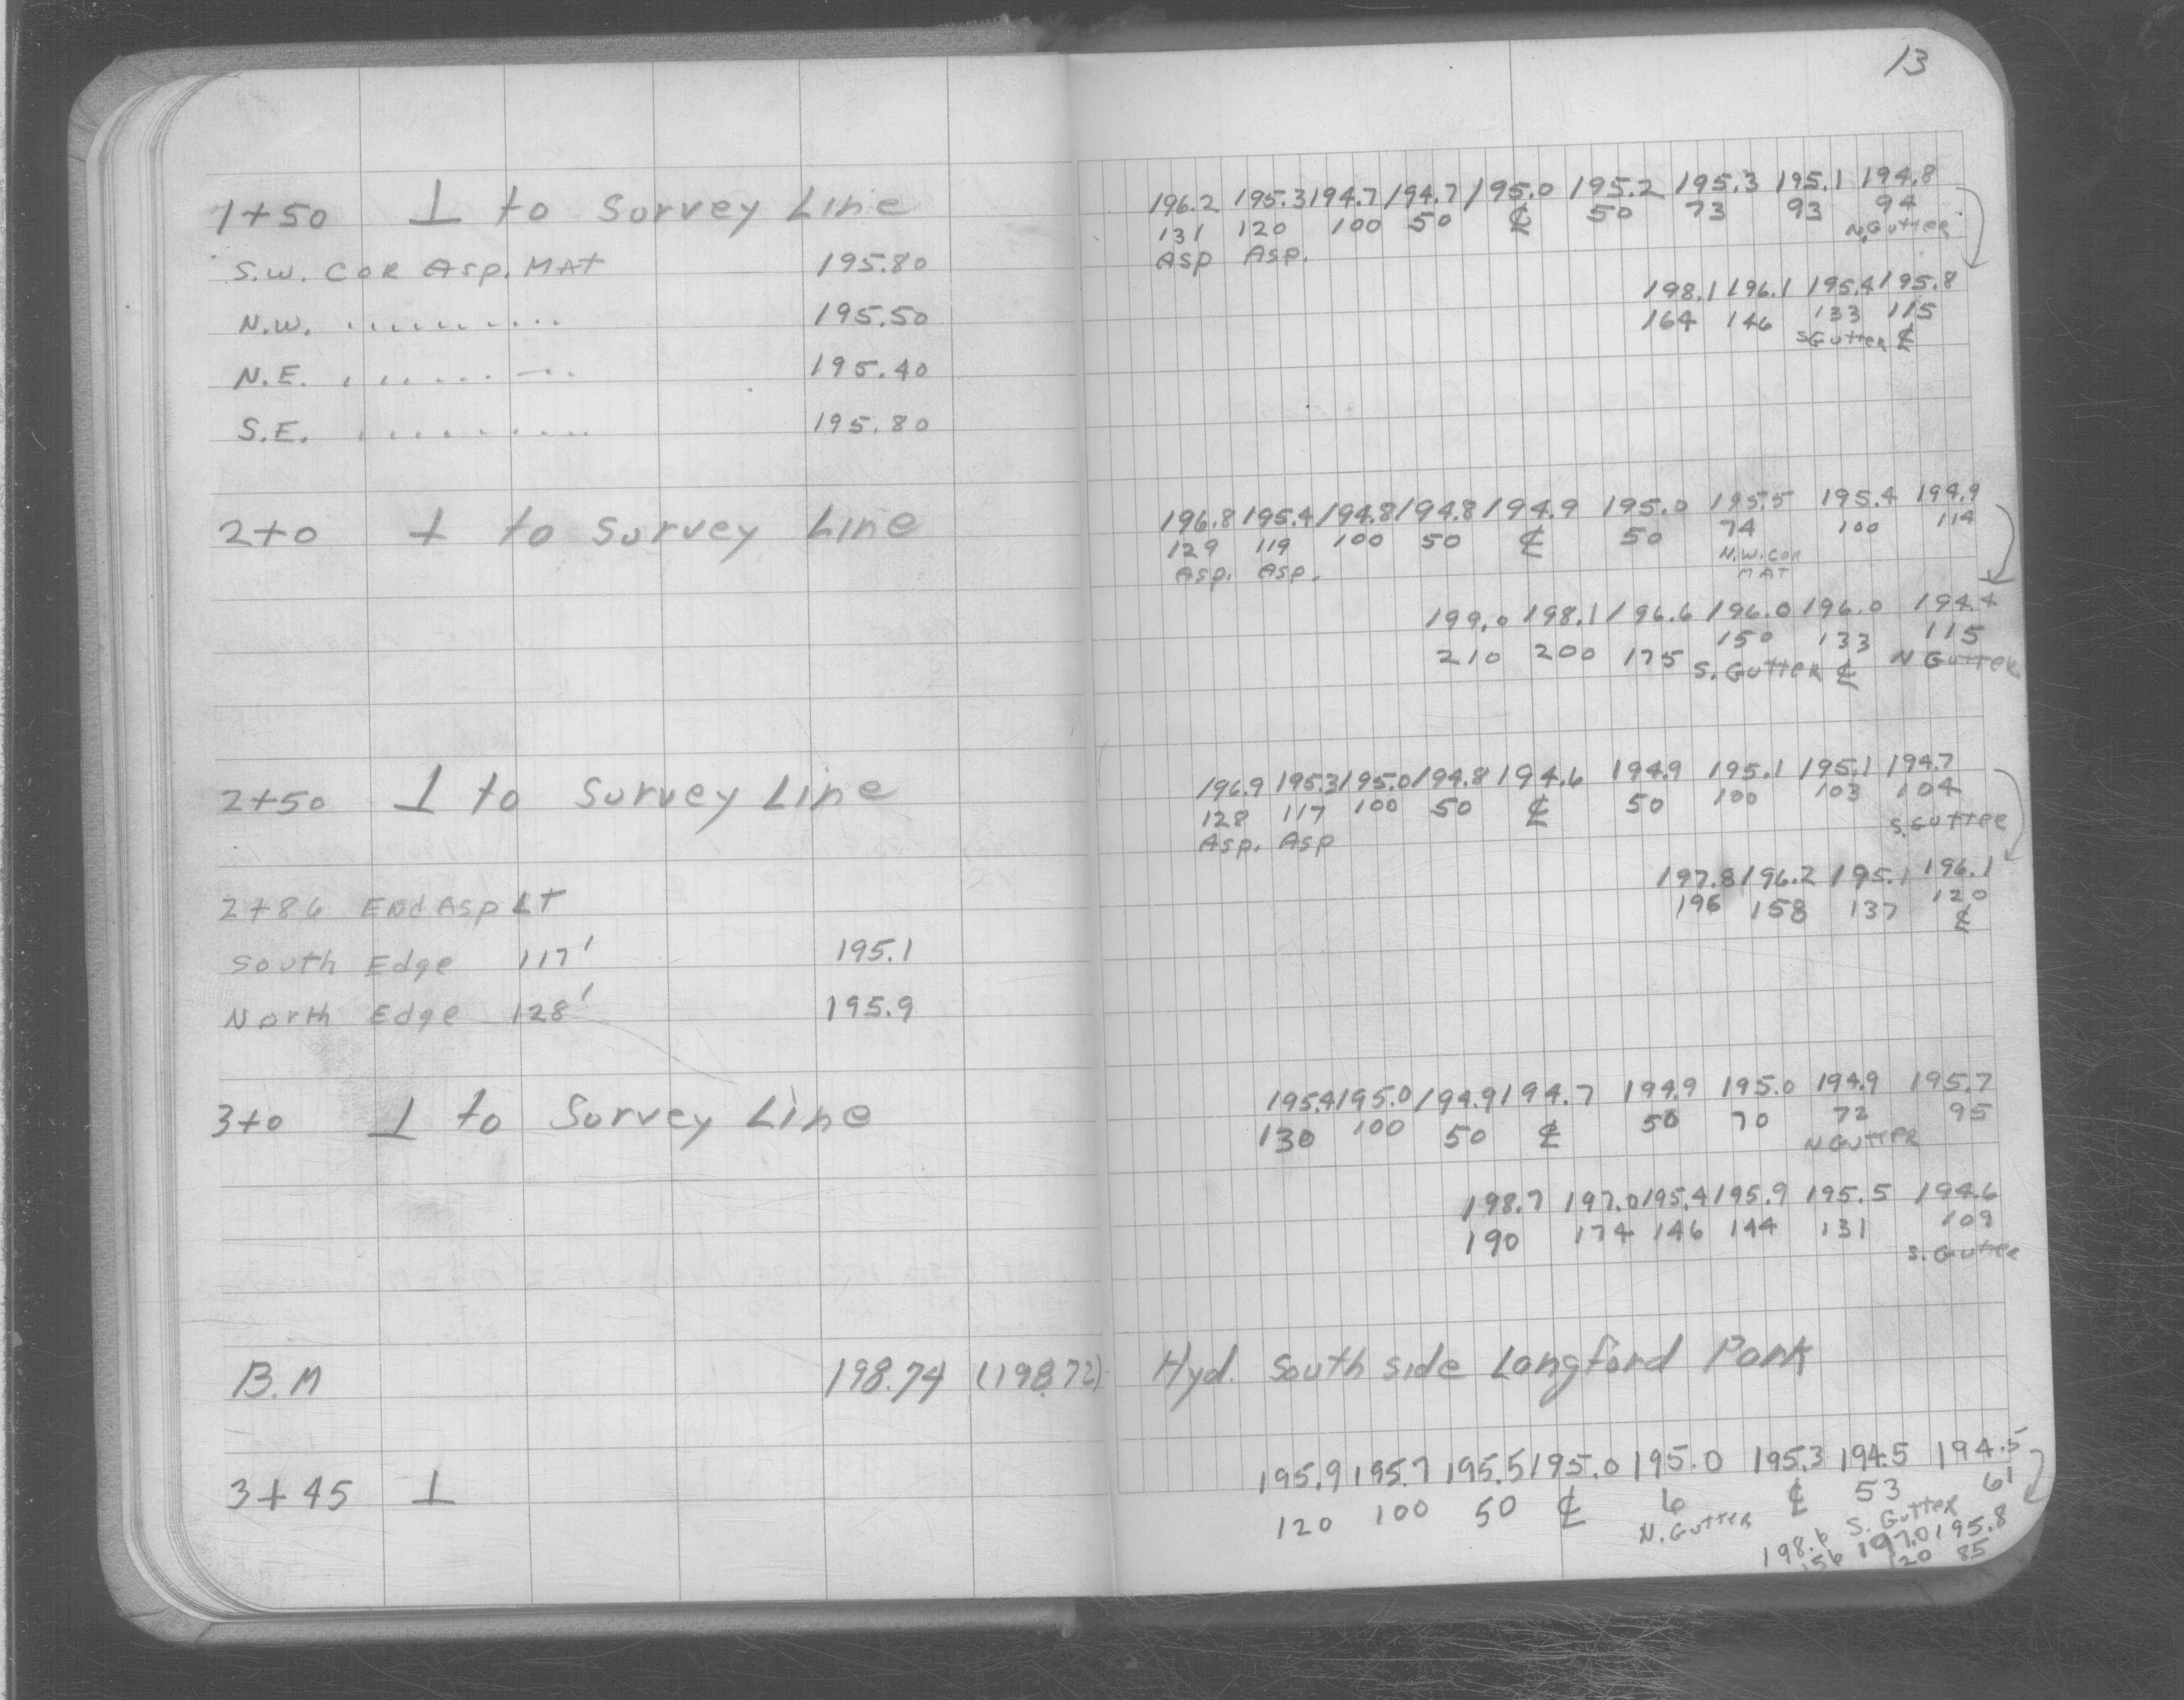 13
1+50 ⊥ to Survey Line
S.W. COR Asp. MAT 195.80
N.W. ......... 195.50
N.E. ......... 195.40
S.E. ......... 195.80
2+0 ⊥ to Survey Line
2+50 ⊥ to Survey Line
2+86 End Asp LT
South Edge 117' 195.1
North Edge 128' 195.9
3+0 ⊥ to Survey Line
B.M 198.74 (198.72)
3+45 ⊥
196.2 195.3 194.7 194.7 195.0 195.2 195.3 195.1 194.8
131 120 100 50 ℄ 50 73 93 94
Asp Asp. N.Gutter
198.1 196.1 195.4 195.8
164 146 133 115
S Gutter ℄
196.8 195.4 194.8 194.8 194.9 195.0 195.5 195.4 194.9
129 119 100 50 ℄ 50 74 100 114
Asp. Asp. N.W. COR
MAT
199.0 198.1 196.6 196.0 196.0 194.4
210 200 175 150 133 115
S. Gutter ℄ N Gutter
196.9 195.3 195.0 194.8 194.6 194.9 195.1 195.1 194.7
128 117 100 50 ℄ 50 100 103 104
Asp. Asp S.Gutter
197.8 196.2 195.1 196.1
196 158 137 120
℄
195.4 195.0 194.9 194.7 194.9 195.0 194.9 195.7
130 100 50 ℄ 50 70 72 95
N Gutter
198.7 197.0 195.4 195.9 195.5 194.6
190 174 146 144 131 109
S. Gutter
Hyd. South side Langford Park
195.9 195.7 195.5 195.0 195.0 195.3 194.5 194.5
120 100 50 ℄ 6 ℄ 53 61
N. Gutter S. Gutter
198.6 197.0 195.8
156 120 85